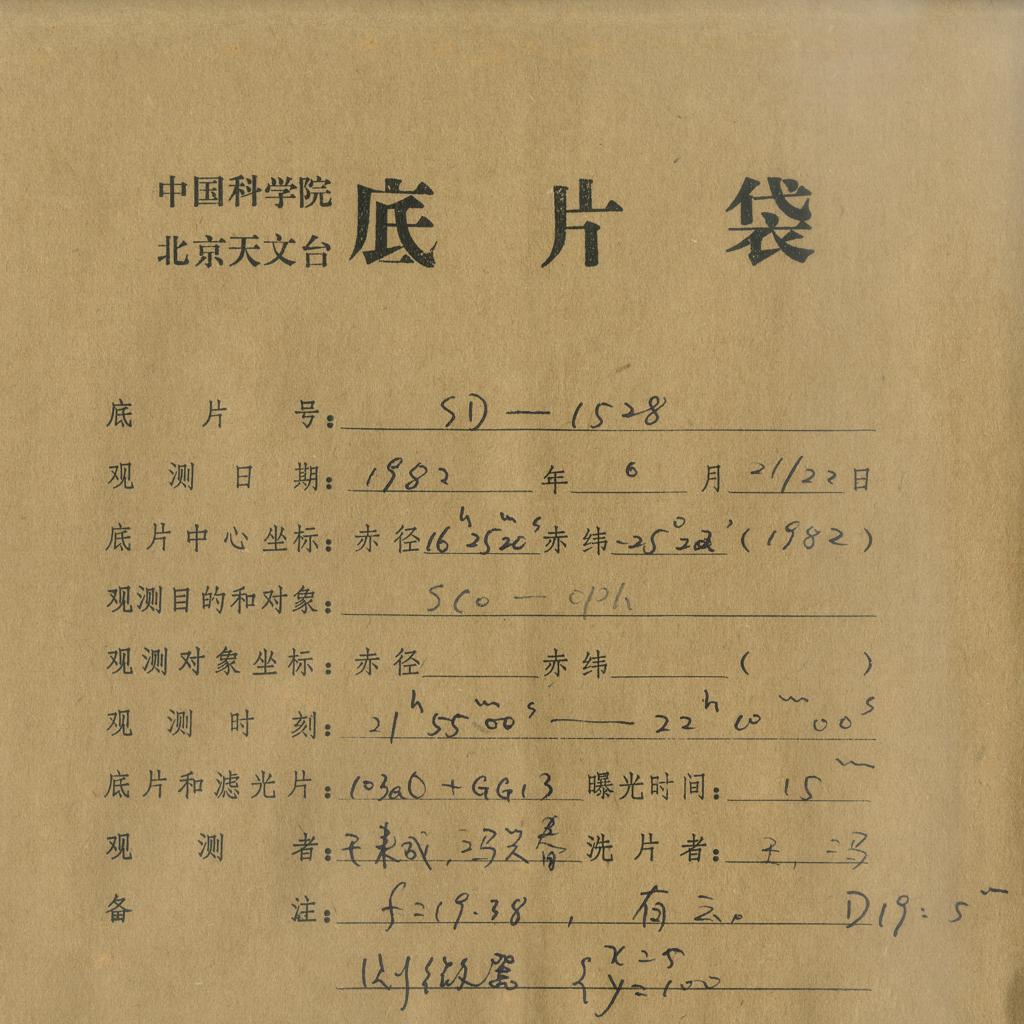 中国科学院
北京天文台
底片袋
底片号：SD—1528
观测日期：1982年6月21/22日
底片中心坐标：赤径16ʰ25ᵐ20ˢ赤纬-25°22′（1982）
观测目的和对象：Sco—oph
观测对象坐标：赤径 赤纬 （ ）
观测时刻：21ʰ55ᵐ00ˢ——22ʰ10ᵐ00ˢ
底片和滤光片：103aO+GG13 曝光时间：15ᵐ
观测者：王来成，冯兴春 洗片者：王，冯
备注：f=19.38，有云。 D19：5ᵐ
x=5
y=100